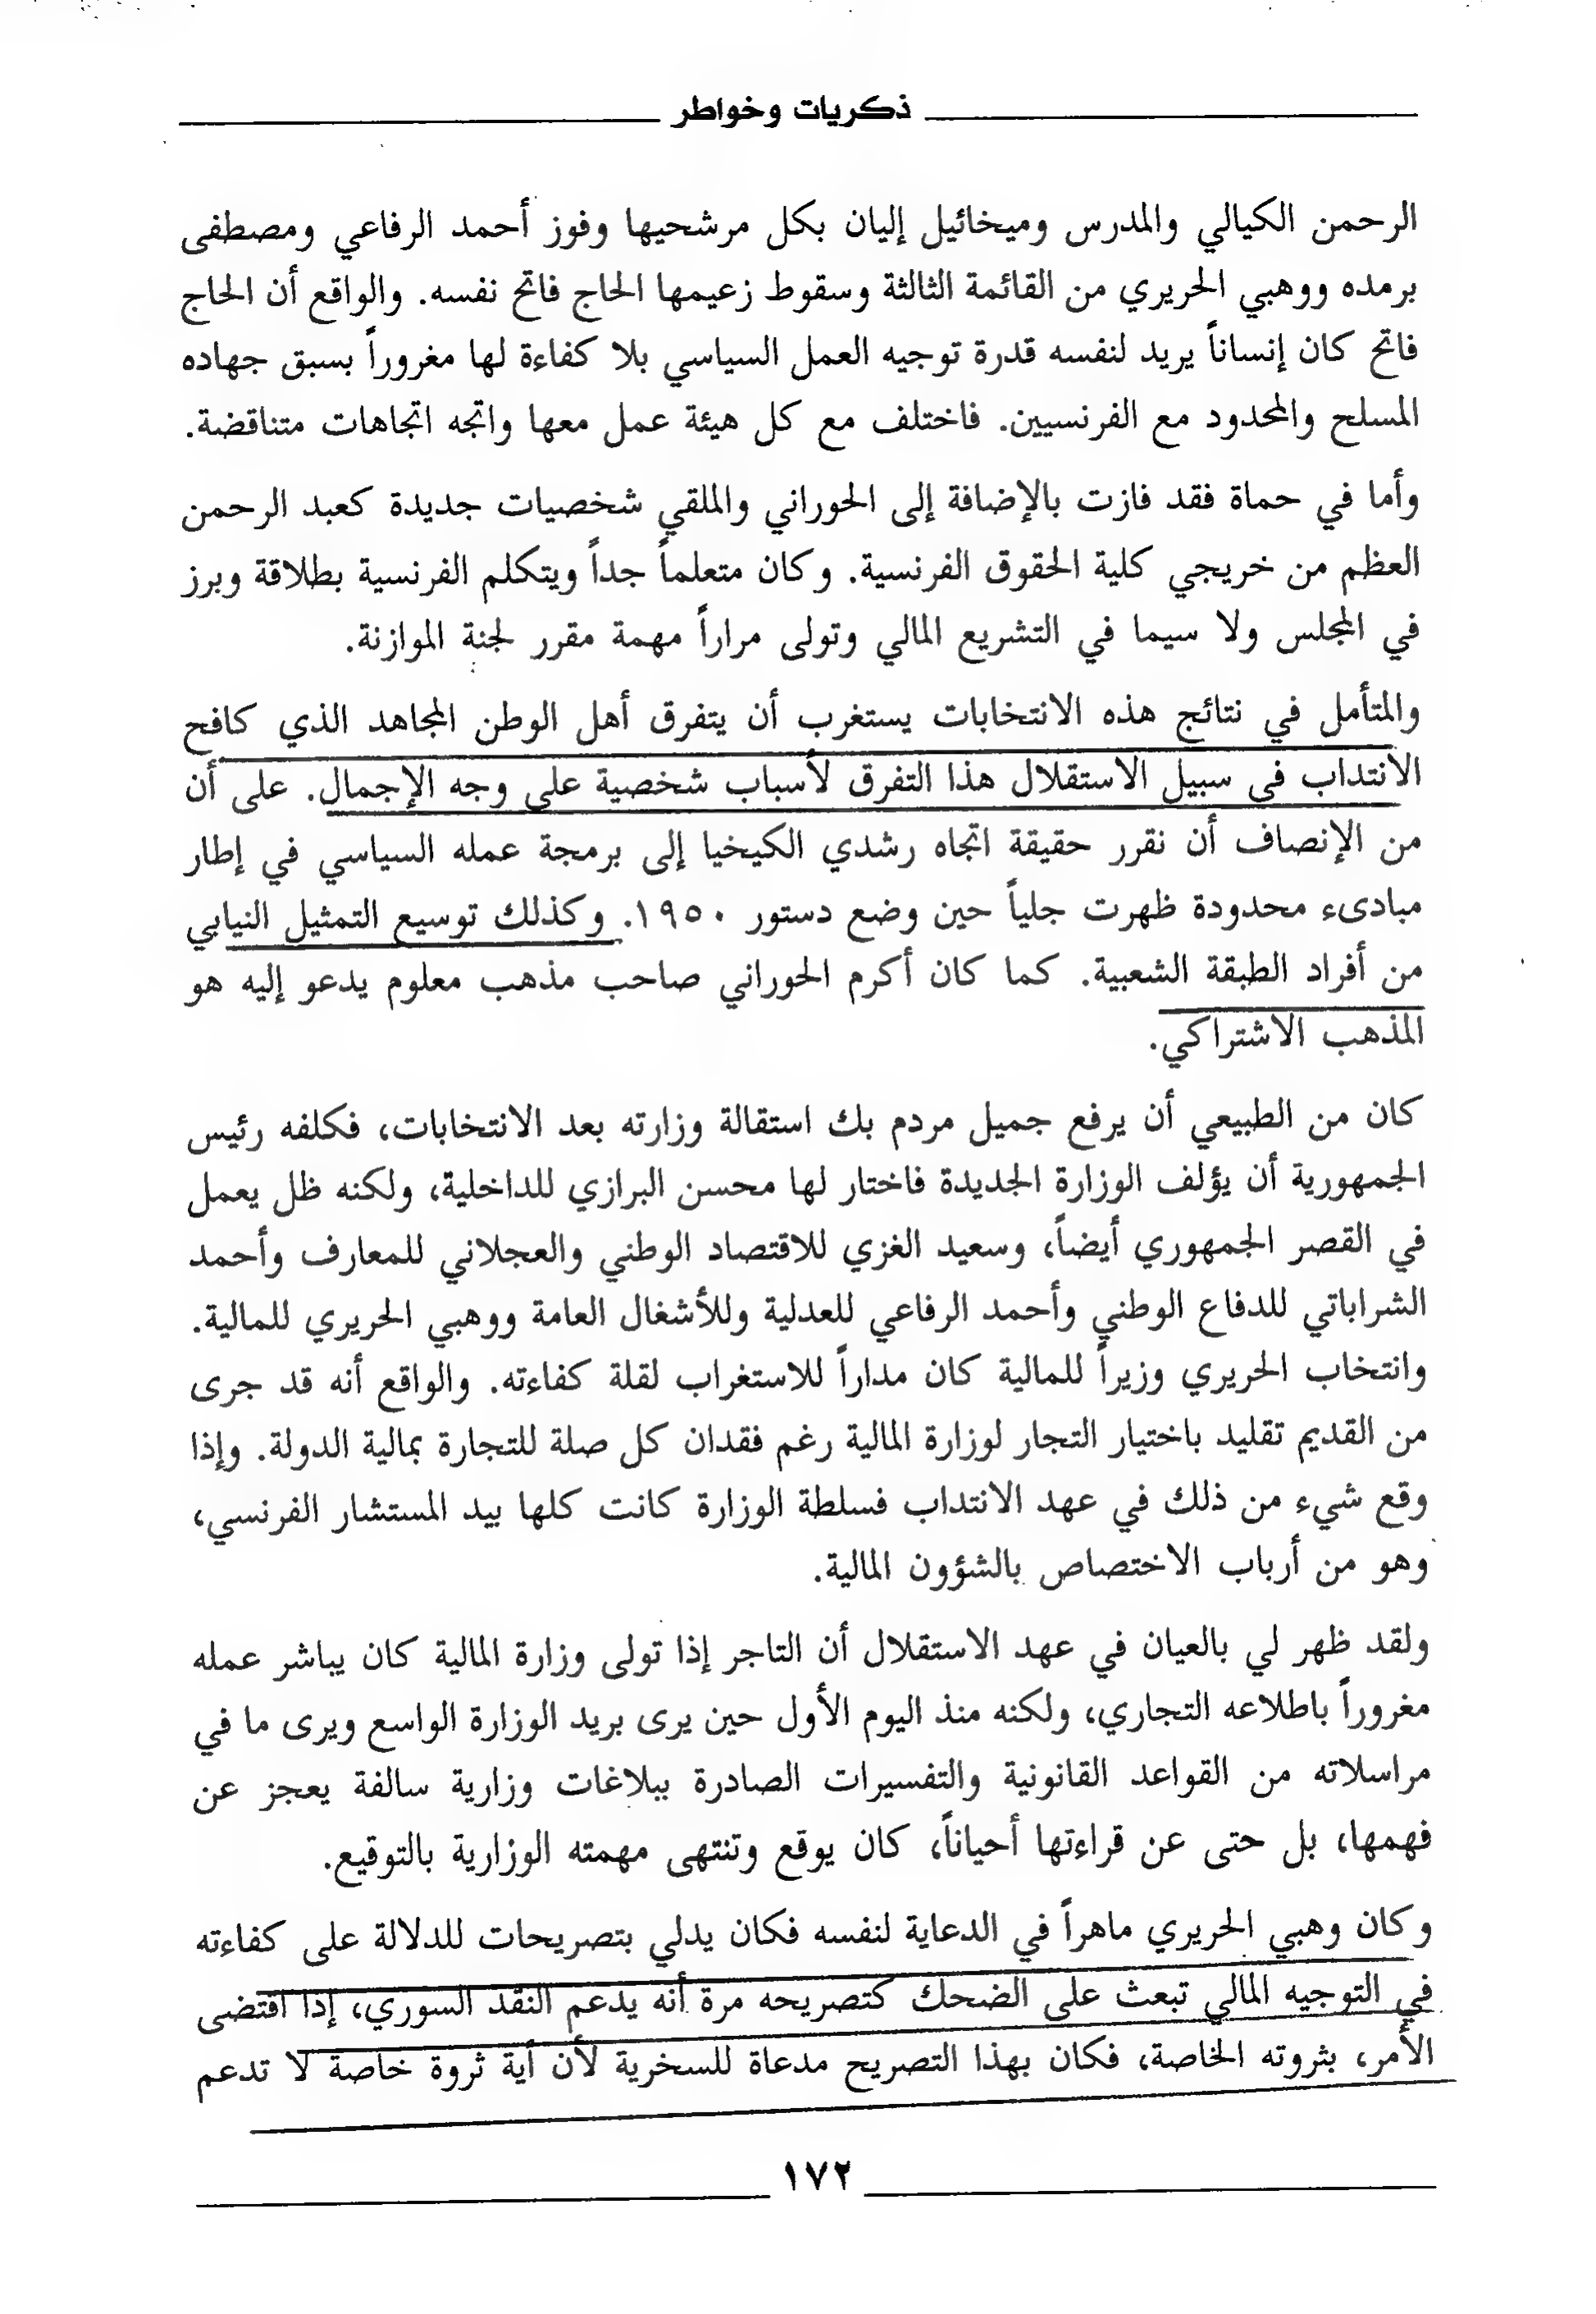 ذكريات وخواطر
الرحمن الكيالي والمدرس وميخائيل إليان بكل مرشحيها وفوز أحمد الرفاعي ومصطفى
برمده ووهبي الحريري من القائمة الثالثة وسقوط زعيمها الحاج فاتح نفسه. والواقع أن الحاج
فاتح كان إنساناً يريد لنفسه قدرة توجيه العمل السياسي بلا كفاءة لها مغروراً بسبق جهاده
المسلح والمحدود مع الفرنسيين. فاختلف مع كل هيئة عمل معها واتجه اتجاهات متناقضة.
وأما في حماة فقد فازت بالإضافة إلى الحوراني والملقي شخصيات جديدة كعبد الرحمن
العظم من خريجي كلية الحقوق الفرنسية. وكان متعلماً جداً ويتكلم الفرنسية بطلاقة وبرز
في المجلس ولا سيما في التشريع المالي وتولى مراراً مهمة مقرر لجنة الموازنة.
والمتأمل في نتائج هذه الانتخابات يستغرب أن يتفرق أهل الوطن المجاهد الذي كافح
الانتداب في سبيل الاستقلال هذا التفرق لأسباب شخصية على وجه الإجمال. على أن
من الإنصاف أن نقرر حقيقة اتجاه رشدي الكيخيا إلى برمجة عمله السياسي في إطار
مبادىء محدودة ظهرت جلياً حين وضع دستور ١٩٥٠. وكذلك توسيع التمثيل النيابي
من أفراد الطبقة الشعبية. كما كان أكرم الحوراني صاحب مذهب معلوم يدعو إليه هو
المذهب الاشتراكي.
كان من الطبيعي أن يرفع جميل مردم بك استقالة وزارته بعد الانتخابات، فكلفه رئيس
الجمهورية أن يؤلف الوزارة الجديدة فاختار لها محسن البرازي للداخلية، ولكنه ظل يعمل
في القصر الجمهوري أيضاً، وسعيد الغزي للاقتصاد الوطني والعجلاني للمعارف وأحمد
الشراباتي للدفاع الوطني وأحمد الرفاعي للعدلية وللأشغال العامة ووهبي الحريري للمالية.
وانتخاب الحريري وزيراً للمالية كان مداراً للاستغراب لقلة كفاءته. والواقع أنه قد جرى
من القديم تقليد باختيار التجار لوزارة المالية رغم فقدان كل صلة للتجارة بمالية الدولة. وإذا
وقع شيء من ذلك في عهد الانتداب فسلطة الوزارة كانت كلها بيد المستشار الفرنسي،
وهو من أرباب الاختصاص بالشؤون المالية.
ولقد ظهر لي بالعيان في عهد الاستقلال أن التاجر إذا تولى وزارة المالية كان يباشر عمله
مغروراً باطلاعه التجاري، ولكنه منذ اليوم الأول حين يرى بريد الوزارة الواسع ويرى ما في
مراسلاته من القواعد القانونية والتفسيرات الصادرة ببلاغات وزارية سالفة يعجز عن
فهمها، بل حتى عن قراءتها أحياناً، كان يوقع وتنتهى مهمته الوزارية بالتوقيع.
وكان وهبي الحريري ماهراً في الدعاية لنفسه فكان يدلي بتصريحات للدلالة على كفاءته
في التوجيه المالي تبعث على الضحك كتصريحه مرة أنه يدعم النقد السوري، إذا اقتضى
الأمر، بثروته الخاصة، فكان بهذا التصريح مدعاة للسخرية لأن أية ثروة خاصة لا تدعم
١٧٢